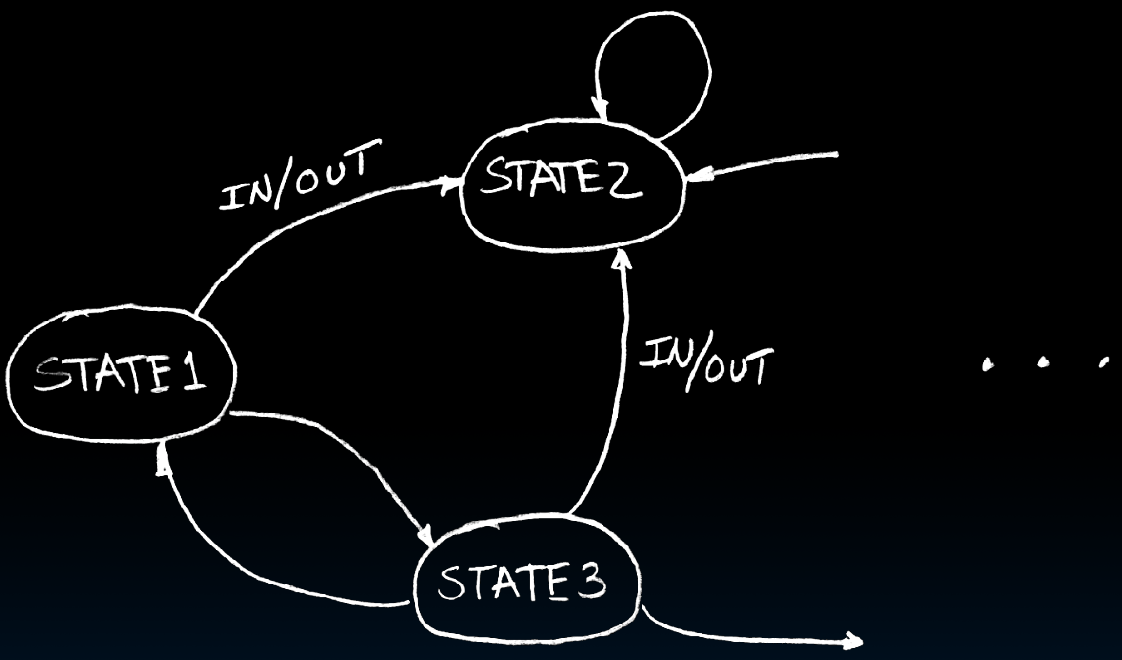 IN/OUT
STATE2
STATE1
IN/OUT
. . .
STATE3